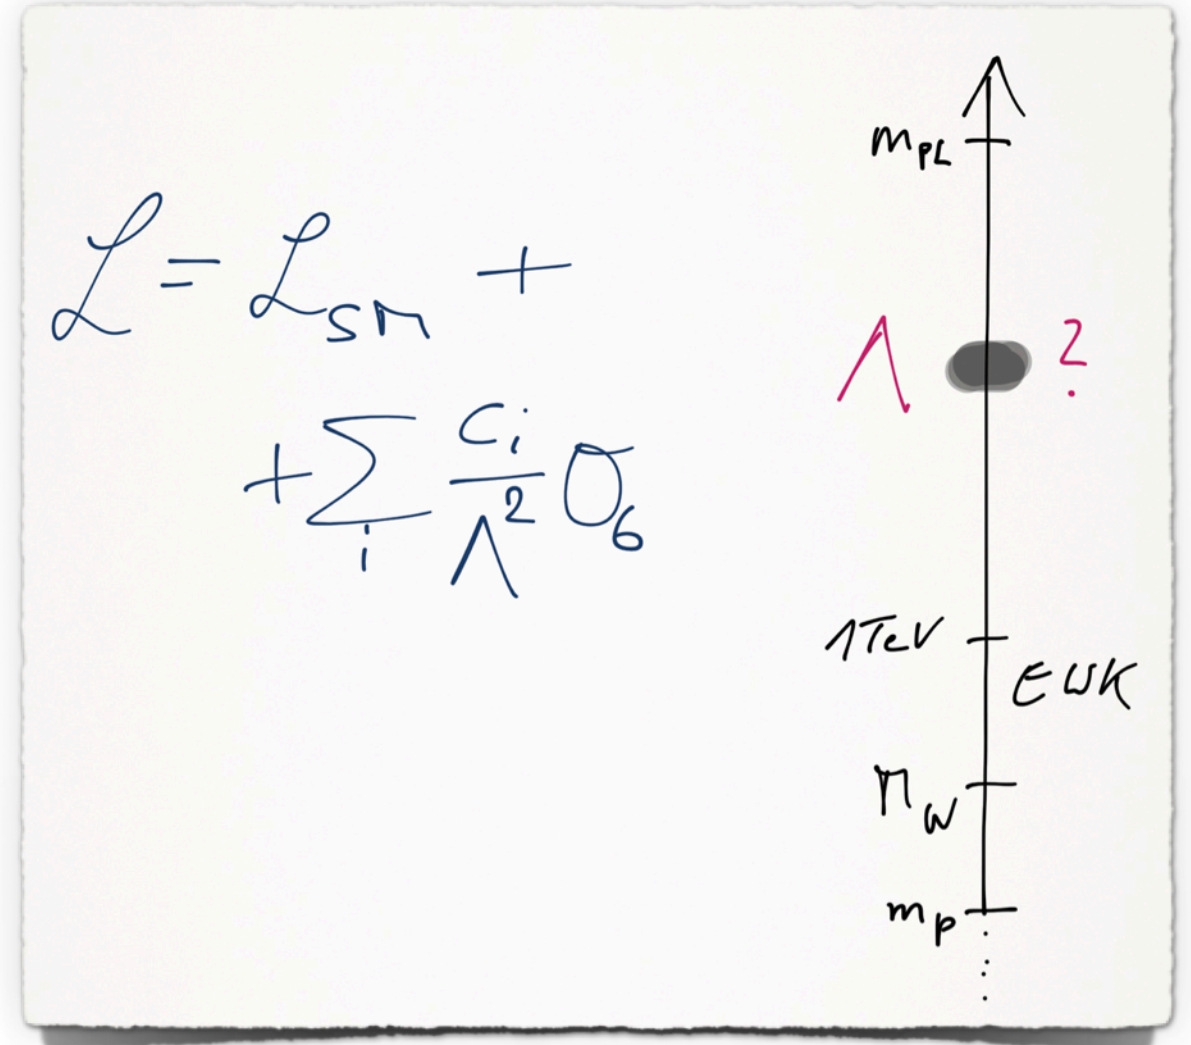 ℒ = ℒ_SM +
+ Σ_i c_i/Λ² O_6
m_PL
Λ ?
1TeV
EWK
M_W
m_p